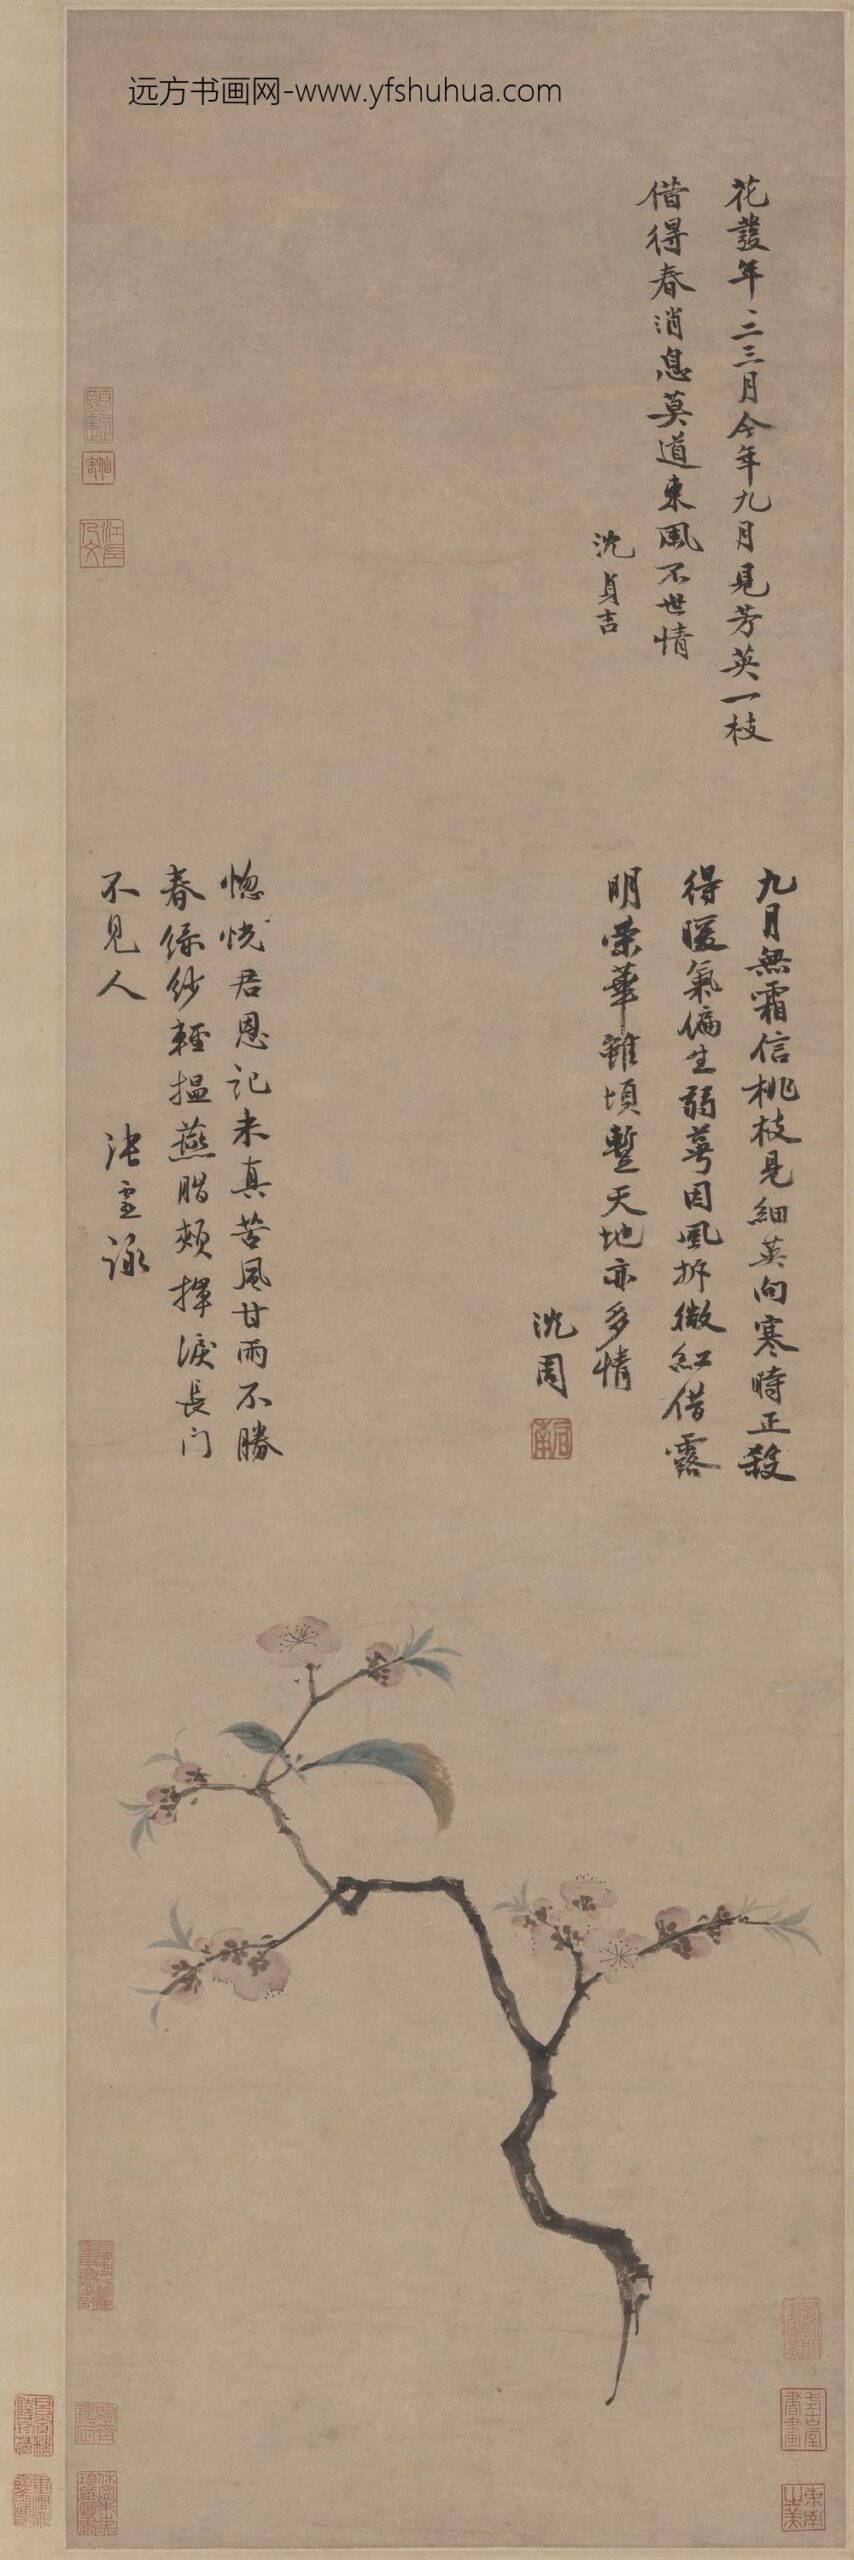 远方书画网-www.yfshuhua.com
花發年二三月今年九月見芳英一枝
借得春消息莫道東風不世情
沈貞吉
九月無霜信桃枝見細英向寒時正殺
得暖氣偏生弱萼因風拆微紅借露
明榮華雖頃暫天地亦多情
沈周
啟南
惚恍君恩記未真苦風甘雨不勝
春綠紗輕揾燕脂頰揮淚長門
不見人
詠
東南之美